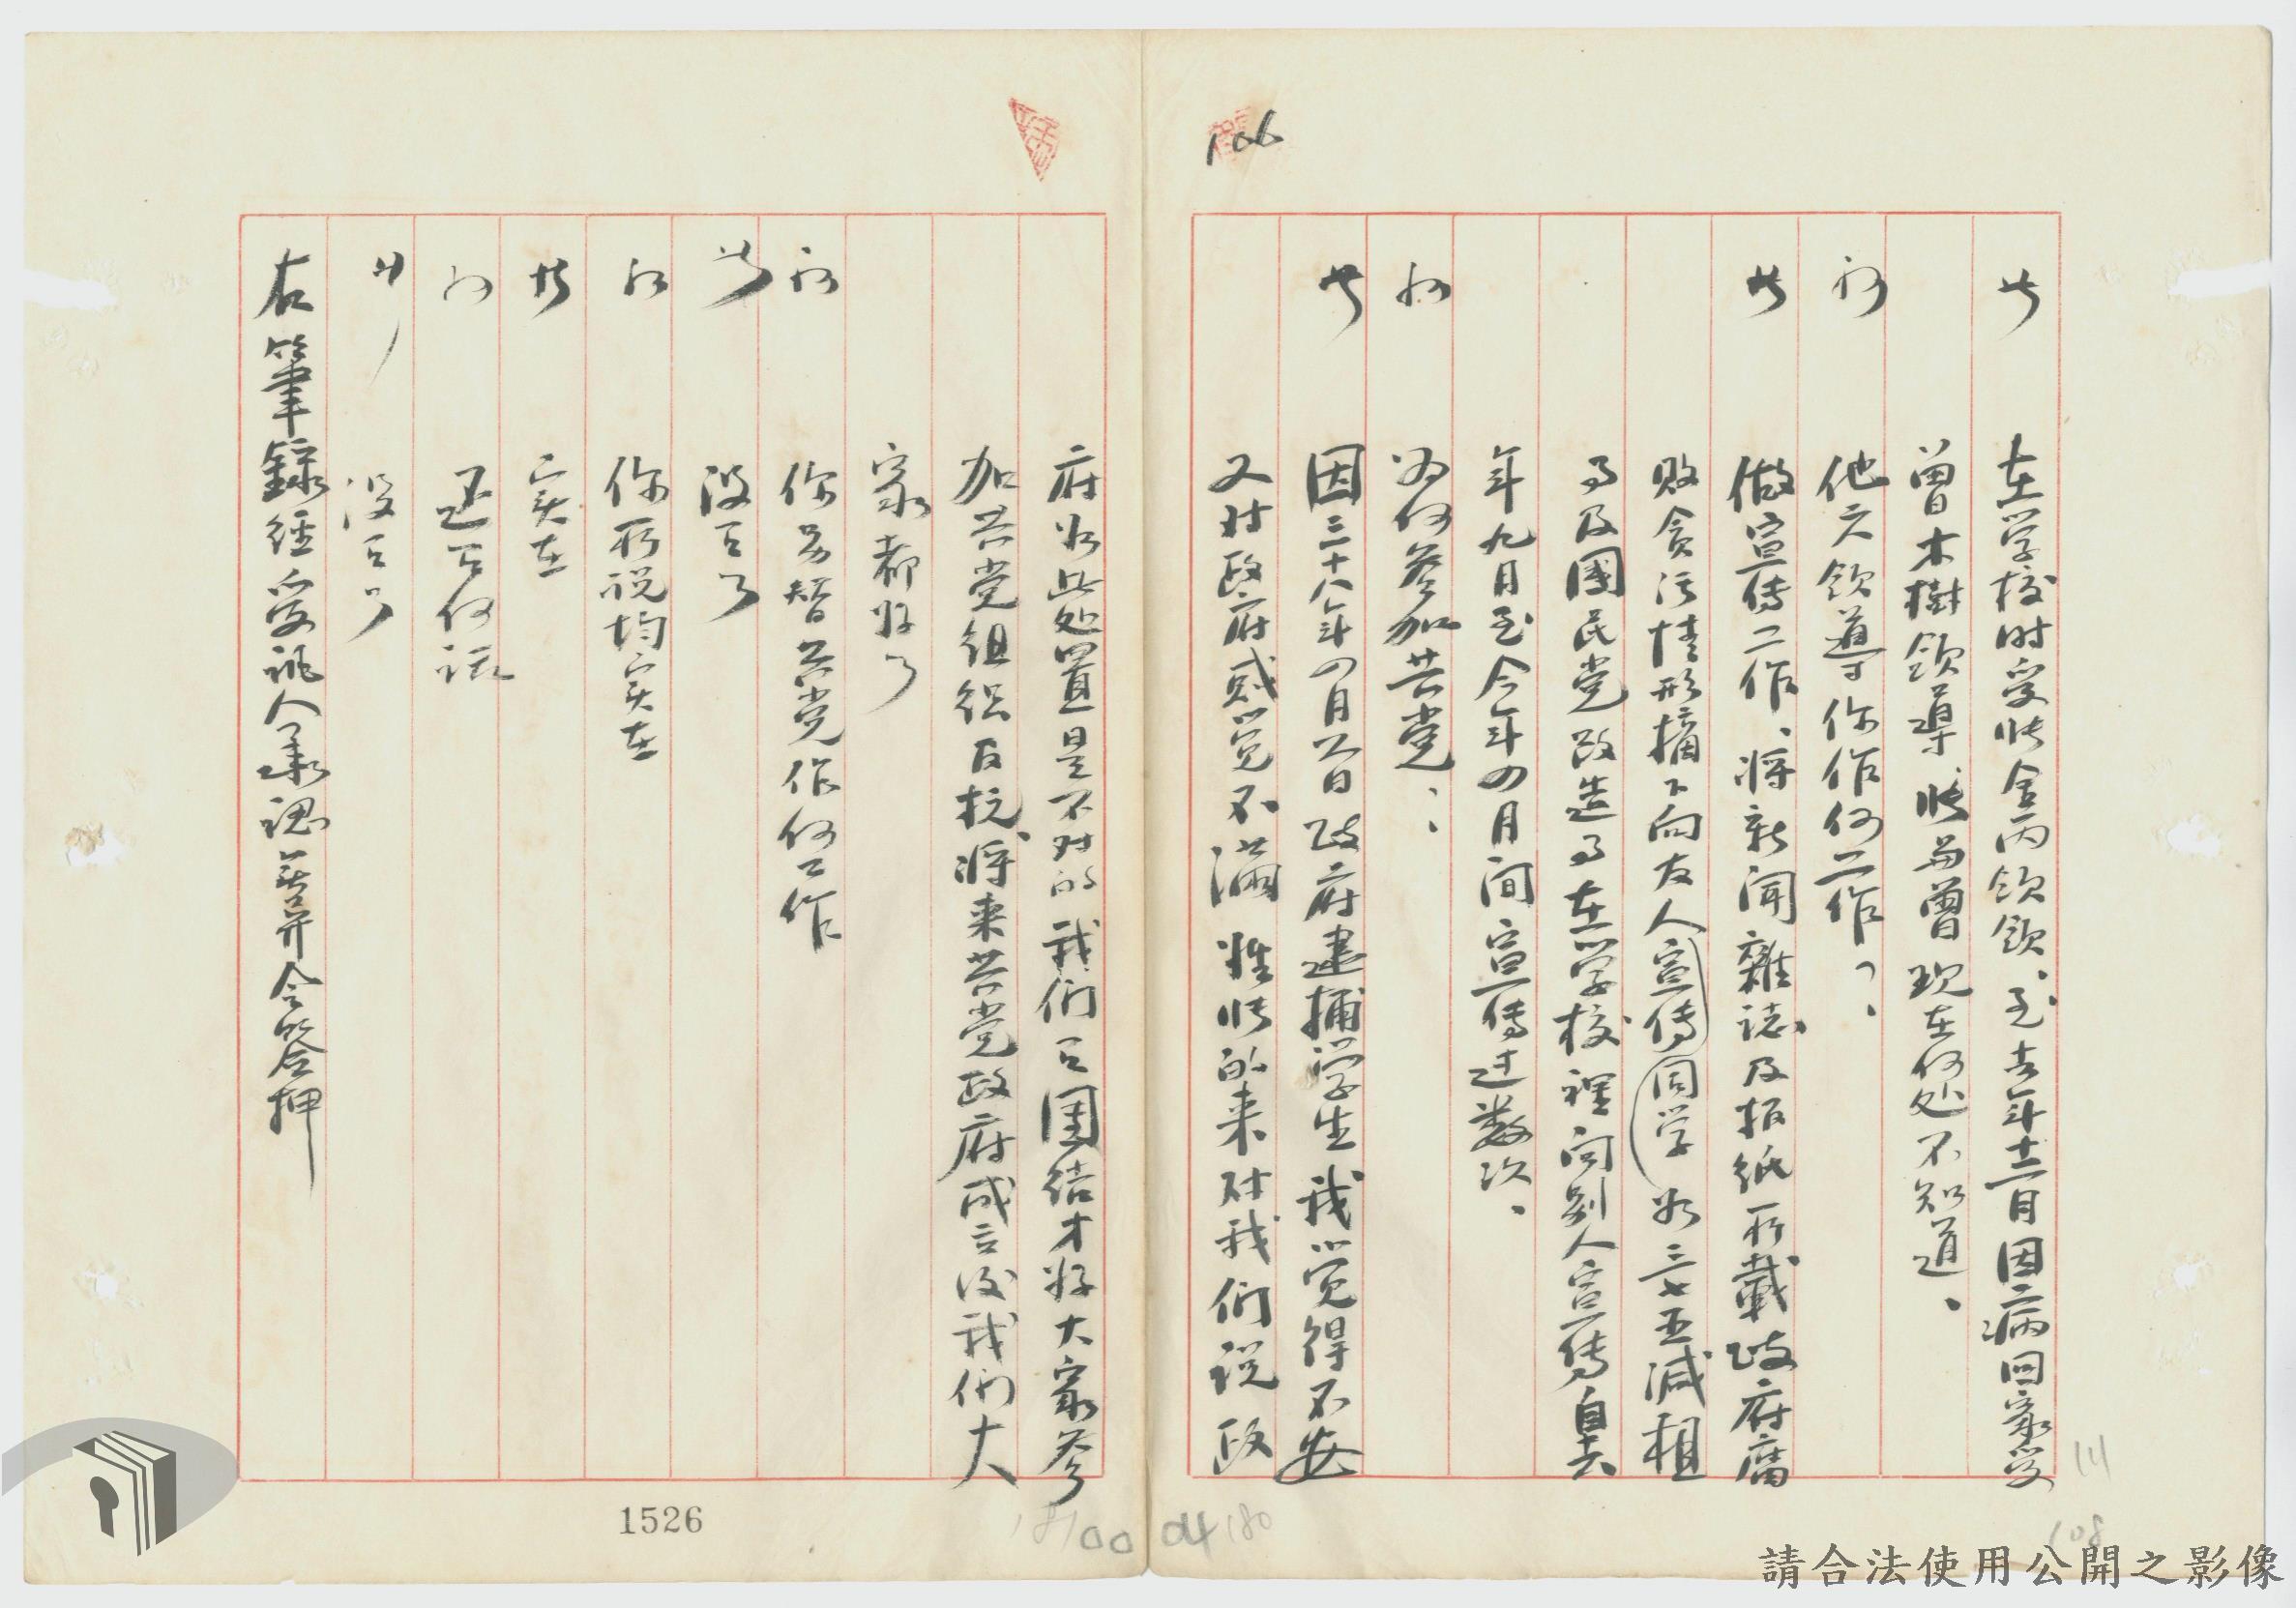 106
答 在学校时受张金丙领领、至去年十二月因病回家受
曾木樹领導、张與曾现在何处不知道、
问 他们领導你作何工作？、
答 做宣传工作、将新闻雜誌及报纸所載政府腐
败贪污情形摘下向友人宣传同学如三七五减租
及國民党改造 在学校裡向别人宣传自去
年九月至今年四月间宣传过数次、
问 为何参加共党：
答 因三十八年四月六日政府逮捕学生我觉得不安
又对政府感觉不满 姓张的来对我们说政
府如此处置是不对的我们 团结才好大家参
加共党组织反抗、将来共党政府成立後我们大
家都好了
问 你另替共党作何工作
答 没有了
问 你所说均实在
答 实在
问 还有何话
答 没有了
右筆録经受訊人承認無异令簽押
1526
181
00 04
180
111
108
請合法使用公開之影像